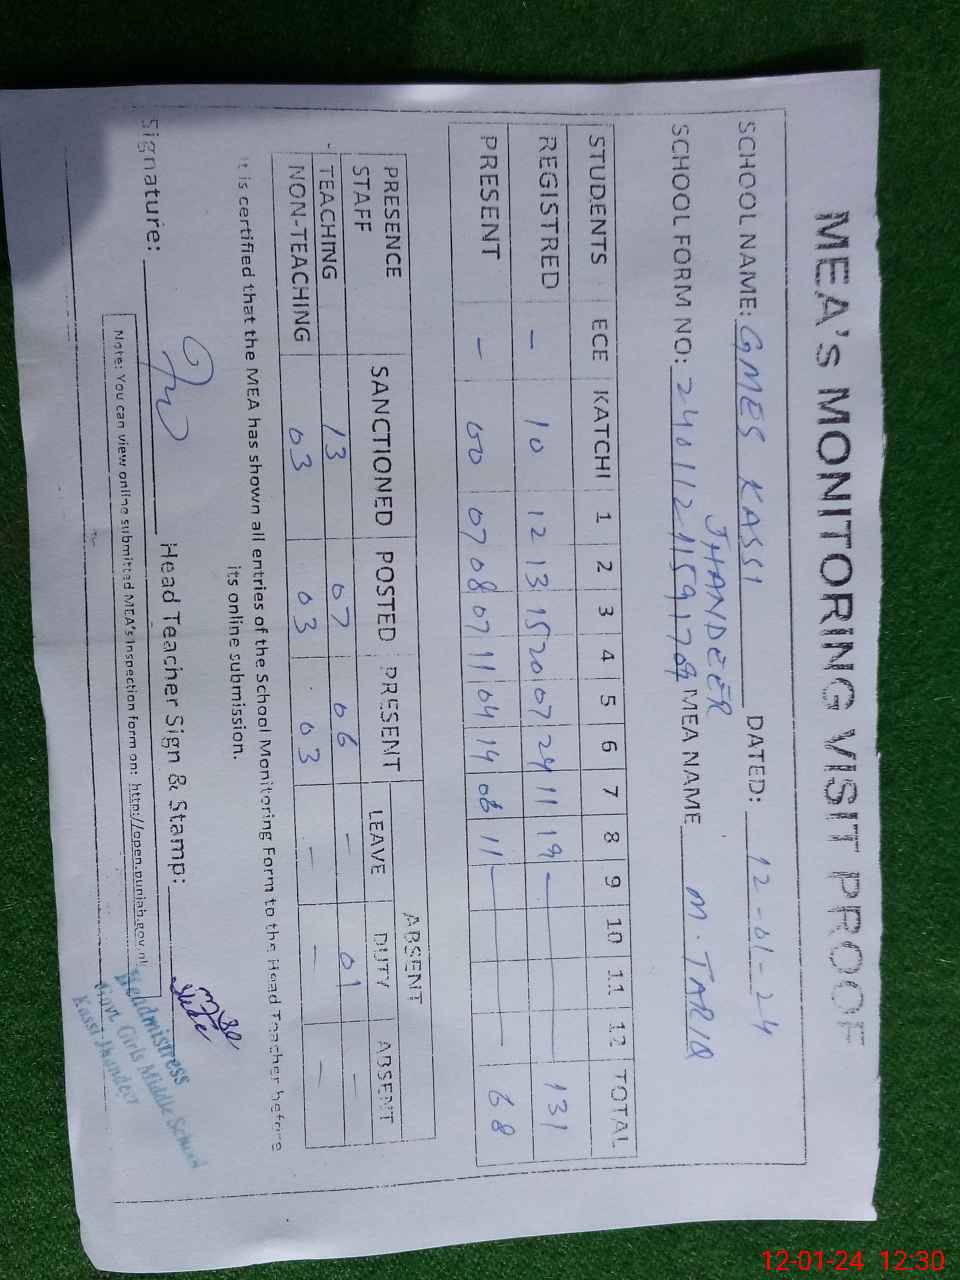 MEA's MONITORING VISIT PROOF
SCHOOL NAME: GMES KASSI JHANDEER DATED: 12-01-24
SCHOOL FORM NO: MEA NAME M. TARIQ
STUDENTS ECE KATCHI 1 2 3 4 5 6 7 8 9 10 11 12 TOTAL
REGISTRED - 10 12 13 15 20 07 24 11 19 - 131
PRESENT - 00 07 08 07 11 04 14 06 11 - 68
PRESENCE STAFF SANCTIONED POSTED PRESENT ABSENT
LEAVE DUTY ABSENT
TEACHING 13 07 06 - 01 -
NON-TEACHING 03 03 03 - - -
It is certified that the MEA has shown all entries of the School Monitoring Form to the Head Teacher before
its online submission.
Signature: Head Teacher Sign & Stamp:
Headmistress
Govt. Girls Middle School
Kassi Jhandeer
Note: You can view online submitted MEA's Inspection form on: http://open.punjab.gov.pk
12-01-24 12:30